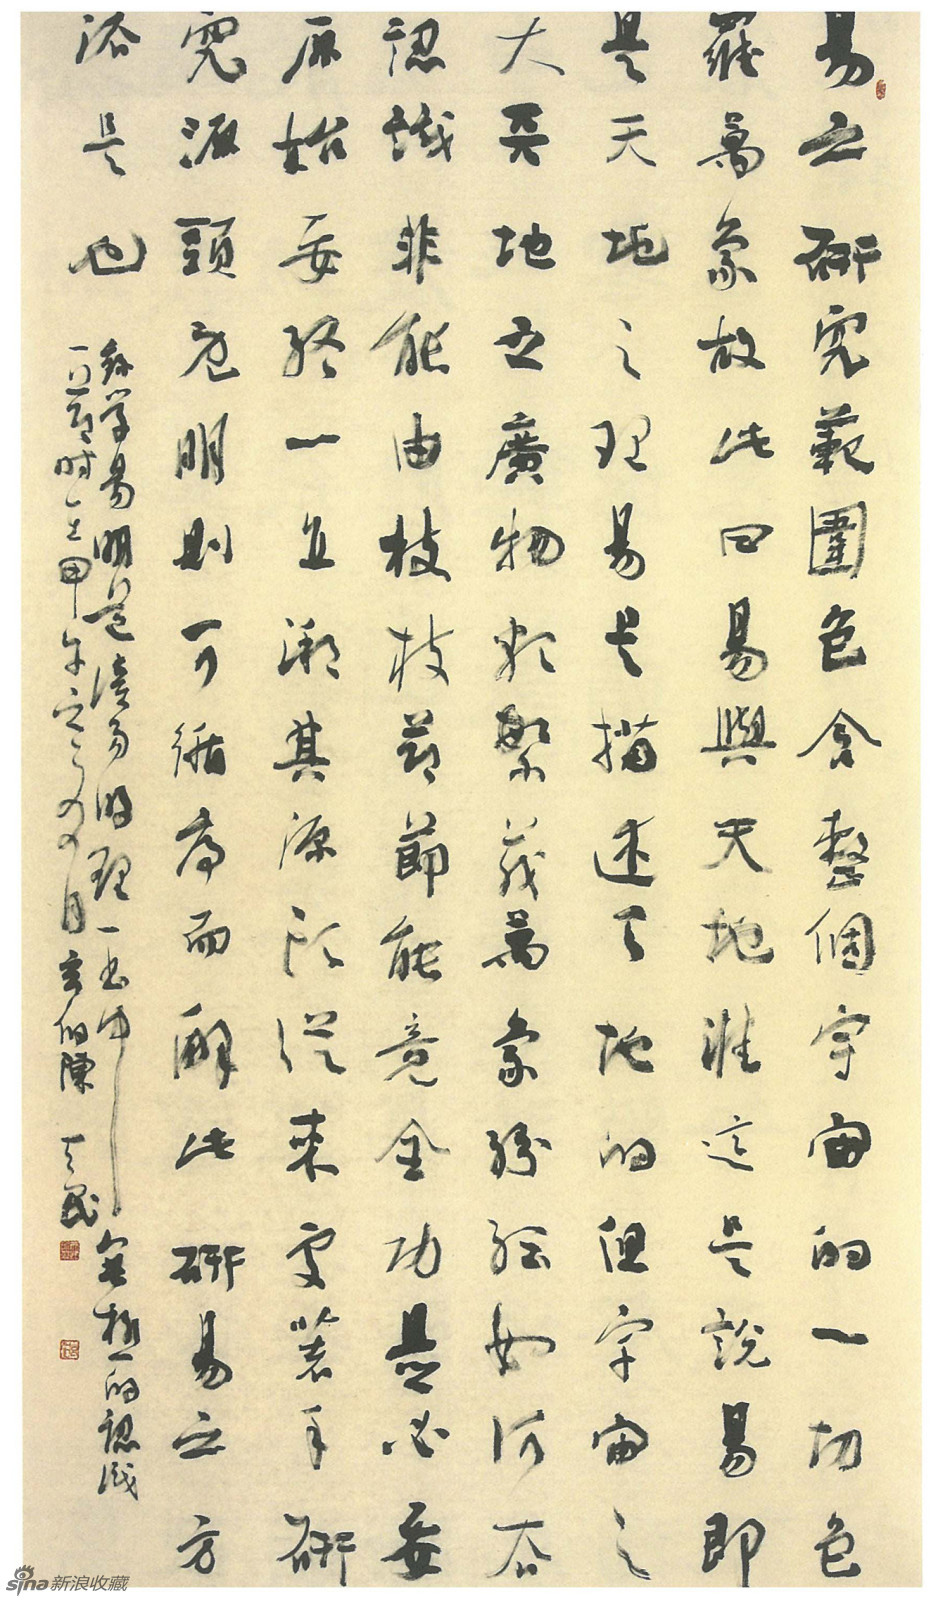 易之研究範圍包含整個宇宙的一切包
羅萬象故此曰易與天地準這是說易即
是天地之理易是描述天地的但宇宙之
大天地之廣物類繁茂萬象紛紜如何去
認識非能由枝枝節節能竟全功是必要
原始要終一直溯其源頭從來處著手研
究源頭既明則可循序而解此研易之方
法是也
錄學易明道淺易的理一書中無極的認識
一節時在甲午之
月
陳
sina新浪收藏